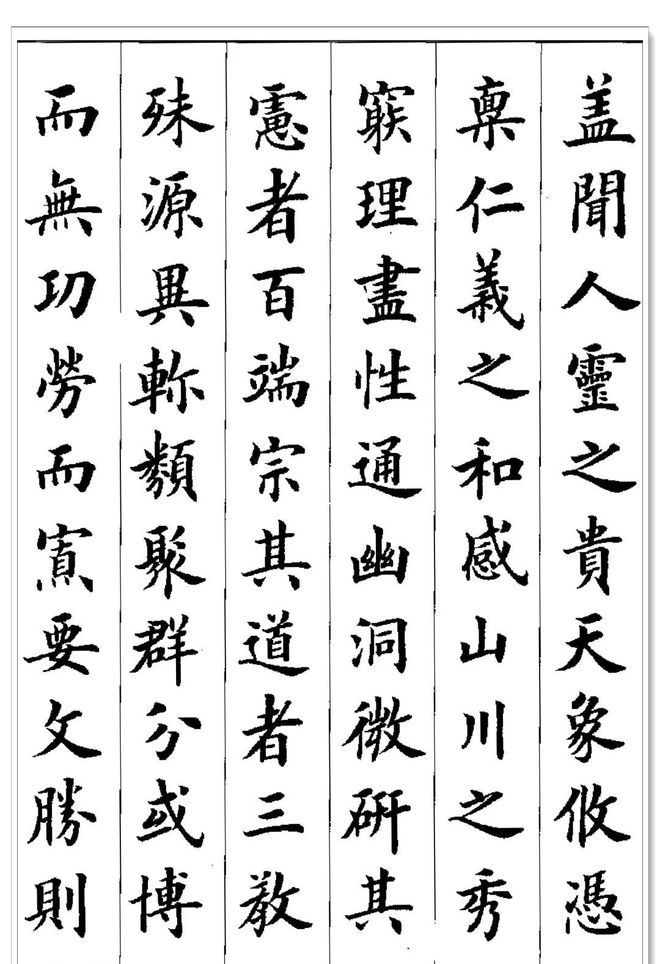 盖聞人靈之貴天象攸憑
稟仁義之和感山川之秀
窮理盡性通幽洞微研其
慮者百端宗其道者三教
殊源異軫類聚群分或博
而無功勞而寡要文勝則